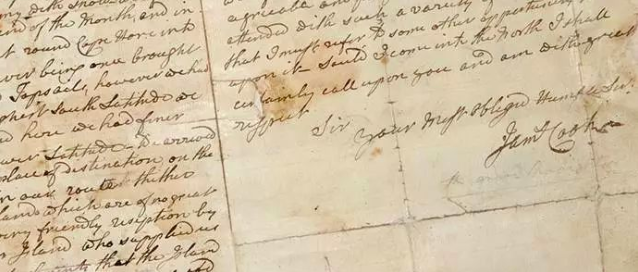 my dish
end of the Month, and in
round Cape Horn into
ever being once brought
Topsails, however we had
highest South Latitude we
and here we had finer
Latitude - we arrived
place of destination, on the
in our route thither
Islands which are of no great
very friendly reception by
Island who supplied us
that the Island
attended with such a variety of
that I must refer to some other oppertunity to
upon it - Should I come into the North I shall
certainly call upon you and am with great
respect
Sir
Your Most Obliged Humble Ser.
Jam.s Cook